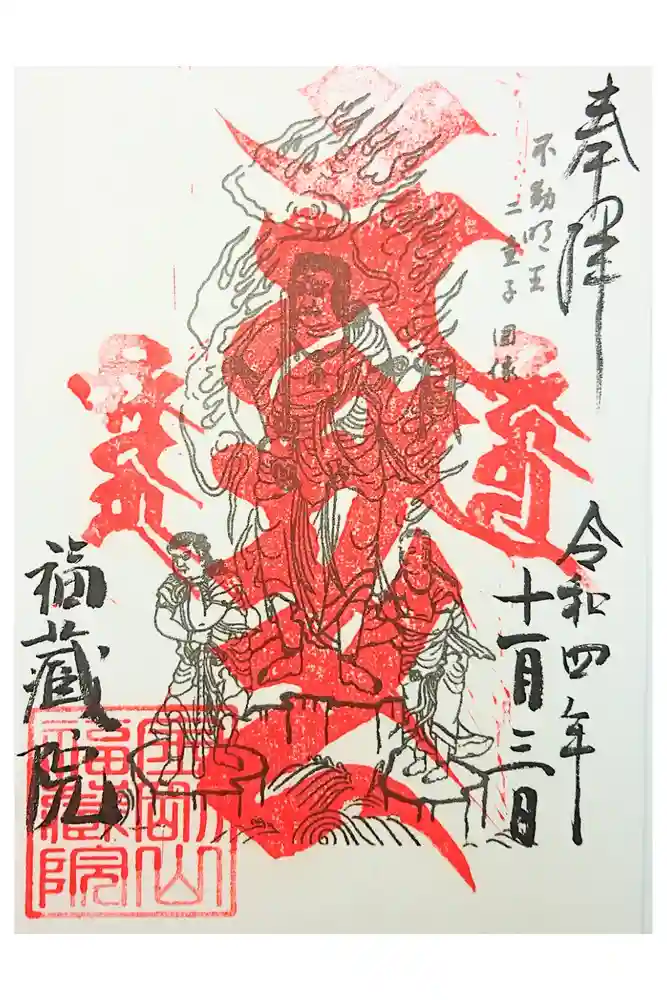 奉拝
不動明王
二童子 図像
令和四年
十一月三日
福蔵院
福蔵院